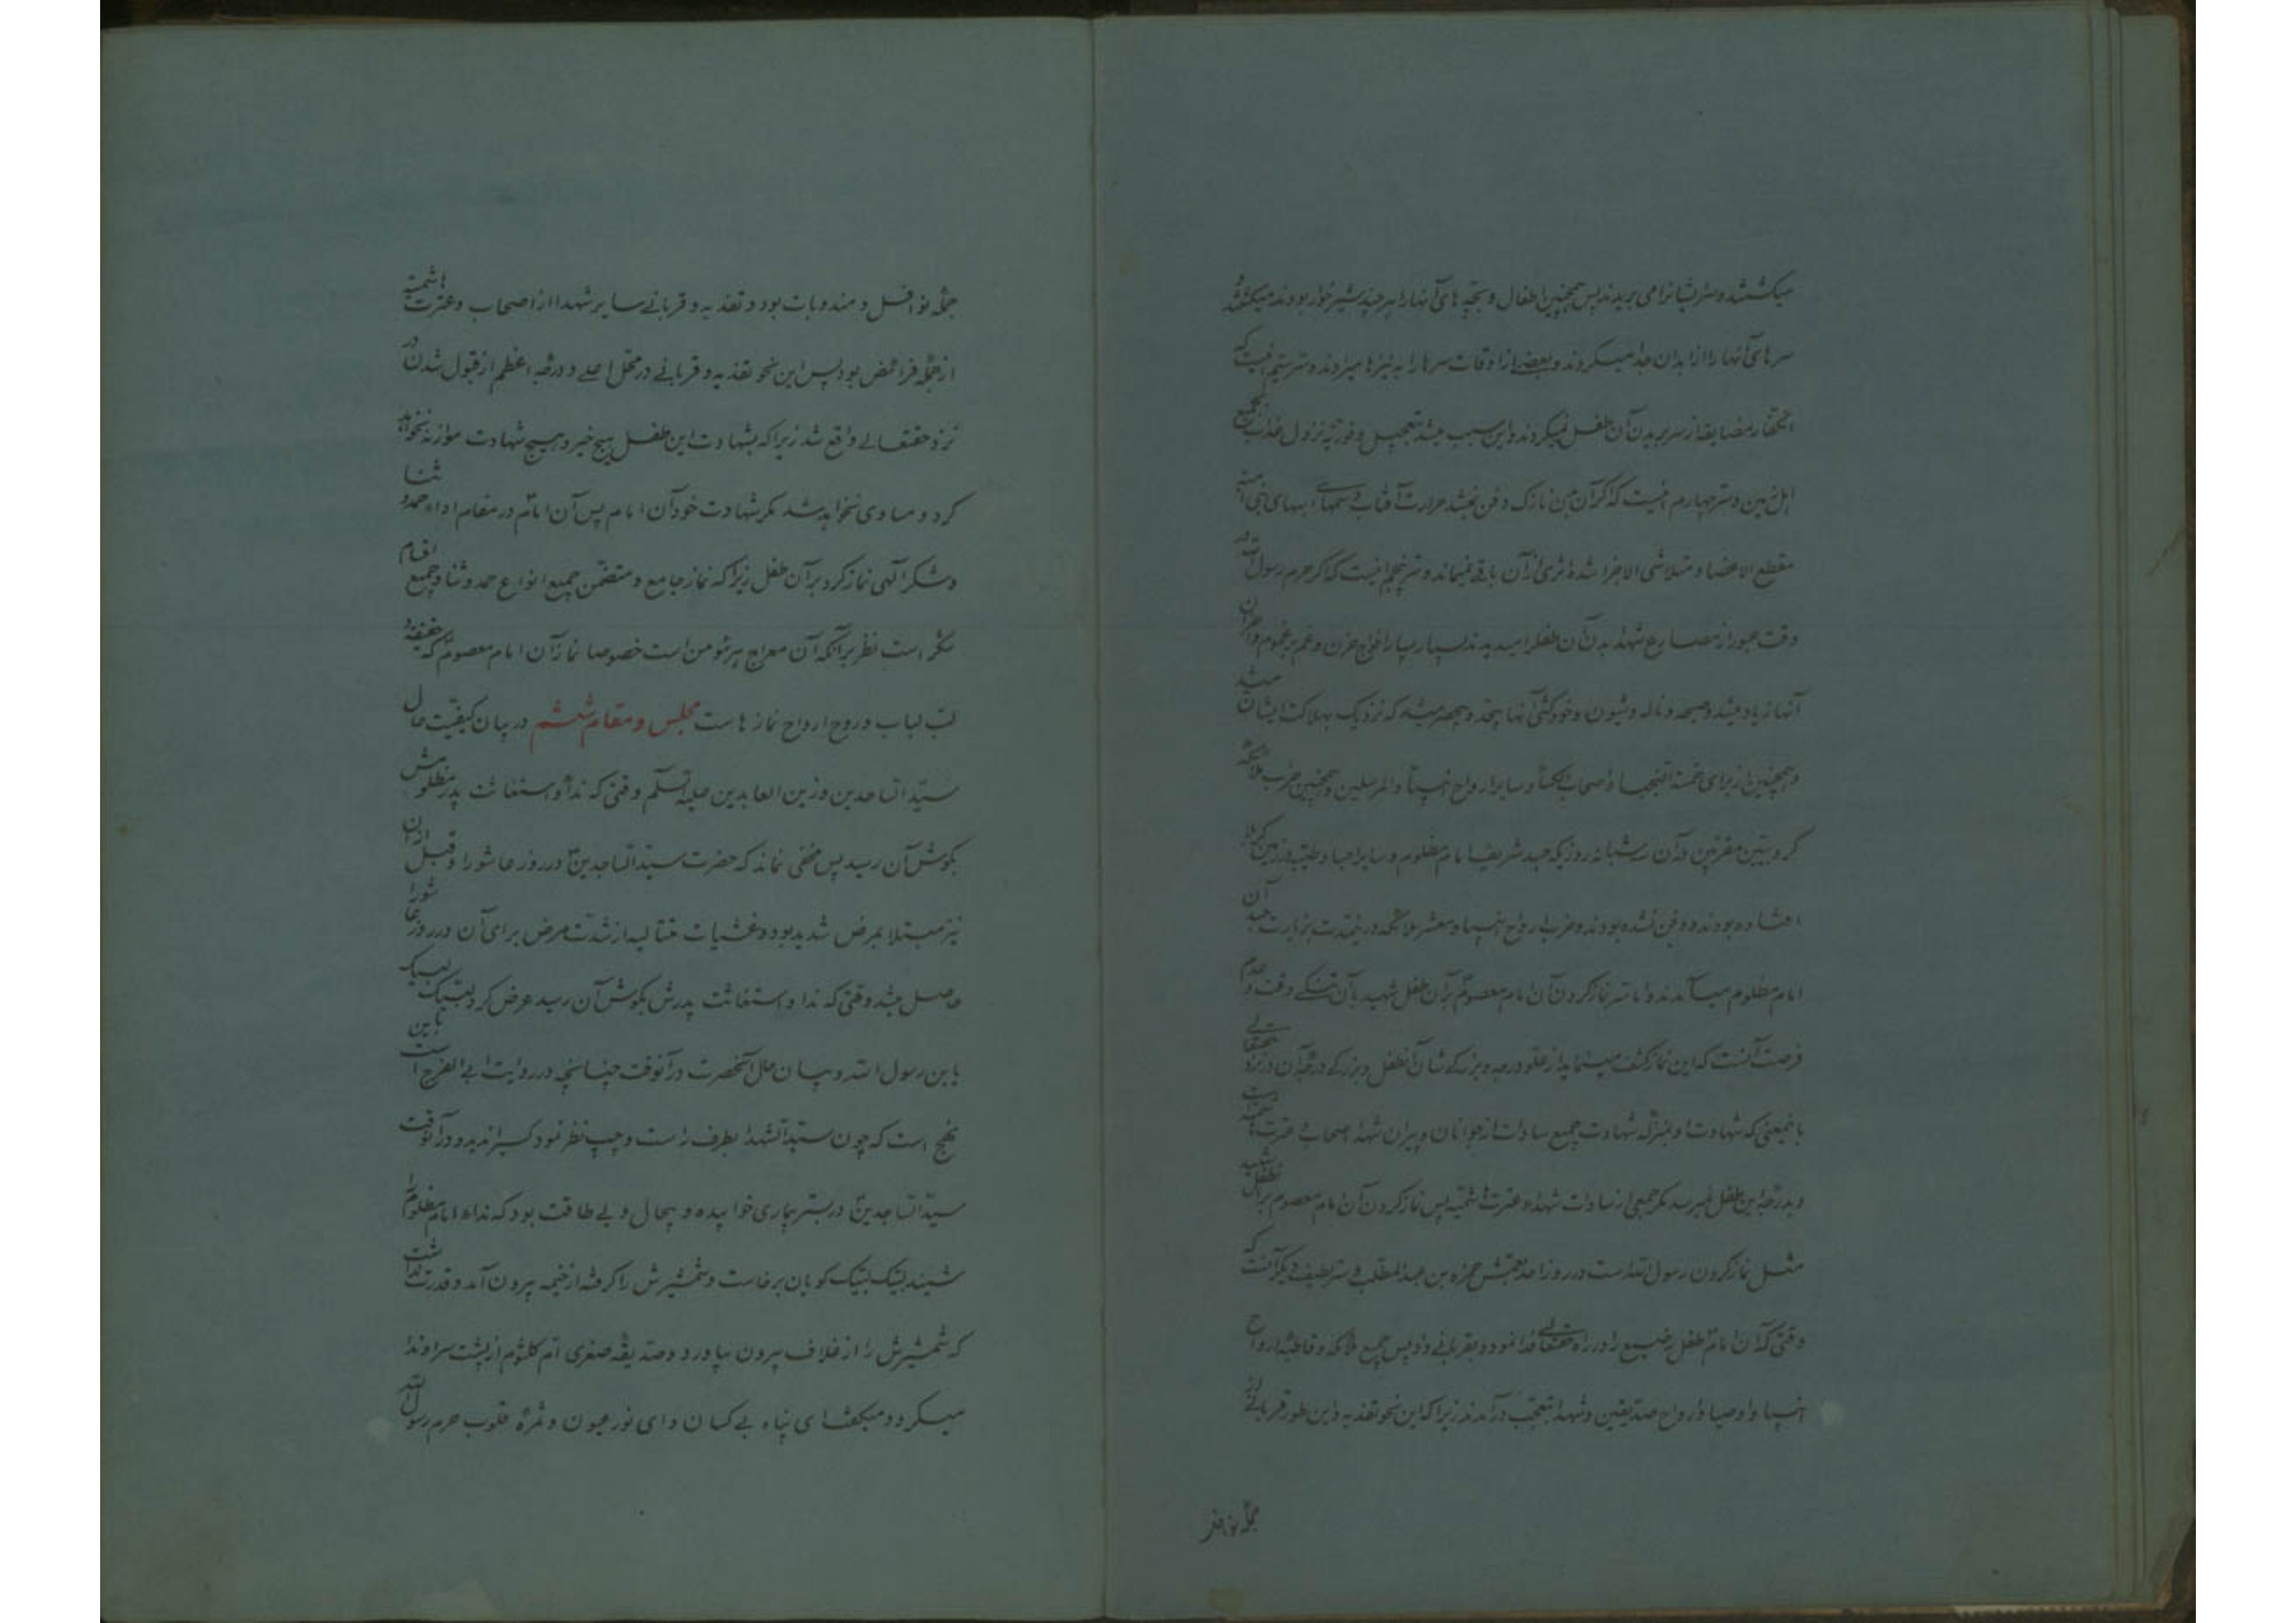 میکشتند و سرایشانرا می بریدند پس همچنین اطفال و بچه های آنها را هر چند شیر خوار بودند میکشتند و
سرهای آنها را از ابدان جدا میکردند و بعضی از اوقات سرها را به نیزها میزدند و سر سیّم اینست که
مضایقه از سر بریدن آن طفل نمیکردند و این سبب میشد تعجیل و فوریّه نزول عذاب بجمیع
اهل زمین و سرّ چهارم اینست که اگر آن بدن نازک دفن نمیشد حرارت آفتاب و سمهای اسبهای بنی امیّه
مقطع الاعضا و متلاشی الاجزا شده اثری از آن باقی نمیماند و سرّ پنجم اینست که اگر حرم رسول الله در
وقت عبور از مصارع شهدا بدن آن طفل را میدیدند بسیار بسیار افواج حزن و غم بر غموم و احزان
آنها زیاد میشد و صیحه و ناله و شیون و خودکشی آنها بیحد و بیحصر میشد که نزدیک بهلاکت ایشان میشد
و همچنین از برای خمسة النجبا و اصحاب الکسآء و سایر ارواح انبیآء و المرسلین و همچنین حزب ملائکه
کروبیّین مقرّبین در آن سه شبانه روز که جسد شریف امام مظلوم و سایر اجساد طیّبه در زمین کربلا
افتاده بودند و دفن نشده بودند و حزب ارواح انبیا و معشر ملائکه در این مدت بزیارت جسد آن
امام مظلوم میآمدند و اما سرّ نماز کردن آن امام معصوم بر آن طفل شهید با آن تنگی وقت و عدم
فرصت آنست که این نماز کشف مینماید از علوّ درجه و بزرگی شأن آن طفل و بزرگی درجه آن در نزد حقتعالی
باینمعنی که شهادت او بمنزله شهادت جمیع سادات از جوانان و پیران شهدا اصحاب عترت هاشمیّه است
و بدرجه این طفل نمیرسد مگر جمعی از سادات شهداء عترت هاشمیّه پس نماز کردن آن امام معصوم بر آن طفل شهید
مثل نماز کردن رسول الله است در روز احد بعمّش حمزه بن عبد المطلب و سرّ لطیف دیگر آنست که
وقتی که آن امام طفل رضیع را در راه حقتعالی فدا نمود و بقربانی داد پس جمیع ملائکه و قاطبه ارواح
انبیا و اوصیا و ارواح صدیقین و شهدا بتعجّب درآمدند زیرا که این نحو تفدیه و این طور قربانی از
جمله نوافل
جمله نوافل و مندوبات بود و تفدیه و قربانی سایر شهدا از اصحاب و عترت هاشمیّه
از جمله فرائض بود پس این نحو تفدیه و قربانی در محل اعلی و درجه اعظم از قبول شدن در
نزد حقتعالی واقع شد زیرا که بشهادت این طفل هیچ خیر و هیچ شهادت موازنه نخواهد
کرد و مساوی نخواهد شد مگر شهادت خود آن امام پس آن امام در مقام اداء حمد و ثنا
و شکر الهی نماز کرد بر آن طفل زیرا که نماز جامع و متضمّن جمیع انواع حمد و ثنا و جمیع اقسام
شکر است نظر بر آنکه آن معراج هر مؤمن است خصوصا نماز آن امام معصوم که حقیقة و
لبّ لباب و روح ارواح نمازهاست مجلس و مقام ششم در بیان کیفیّت حال
سیّد الساجدین و زین العابدین علیه السلم وقتی که نداء و استغاثت پدر مظلومش
بگوش آن رسید پس مخفی نماند که حضرت سیّد الساجدین در روز عاشورا و قبل از آن
نیز مبتلا بمرض شدید بود و غشیات متتالیه از شدّت مرض برای آن در روز عاشورا
حاصل میشد وقتی که ندا و استغاثت پدرش بگوش آن رسید عرض کرد لبّیک لبّیک
یابن رسول الله و بیان حال آنحضرت در آنوقت چنانچه در روایت ابی الفرج است باین
نهج است که چون سیّد الشهدا بطرف راست و چپ نظر نمود کسیرا ندید و در آنوقت
سیّد الساجدین در بستر بیماری خوابیده و بیحال و بی طاقت بود که نداء امام مظلوم را
شنید لبّیک لبّیک گویان برخاست و شمشیرش را گرفته از خیمه بیرون آمد و قدرت نداشت
که شمشیرش را از غلاف بیرون بیاورد و صدیقه صغری ام کلثوم از پشت سر او ندا
میکرد و میگفت ای پناه بی کسان و ای نور عیون و ثمرة قلوب حرم رسول الله